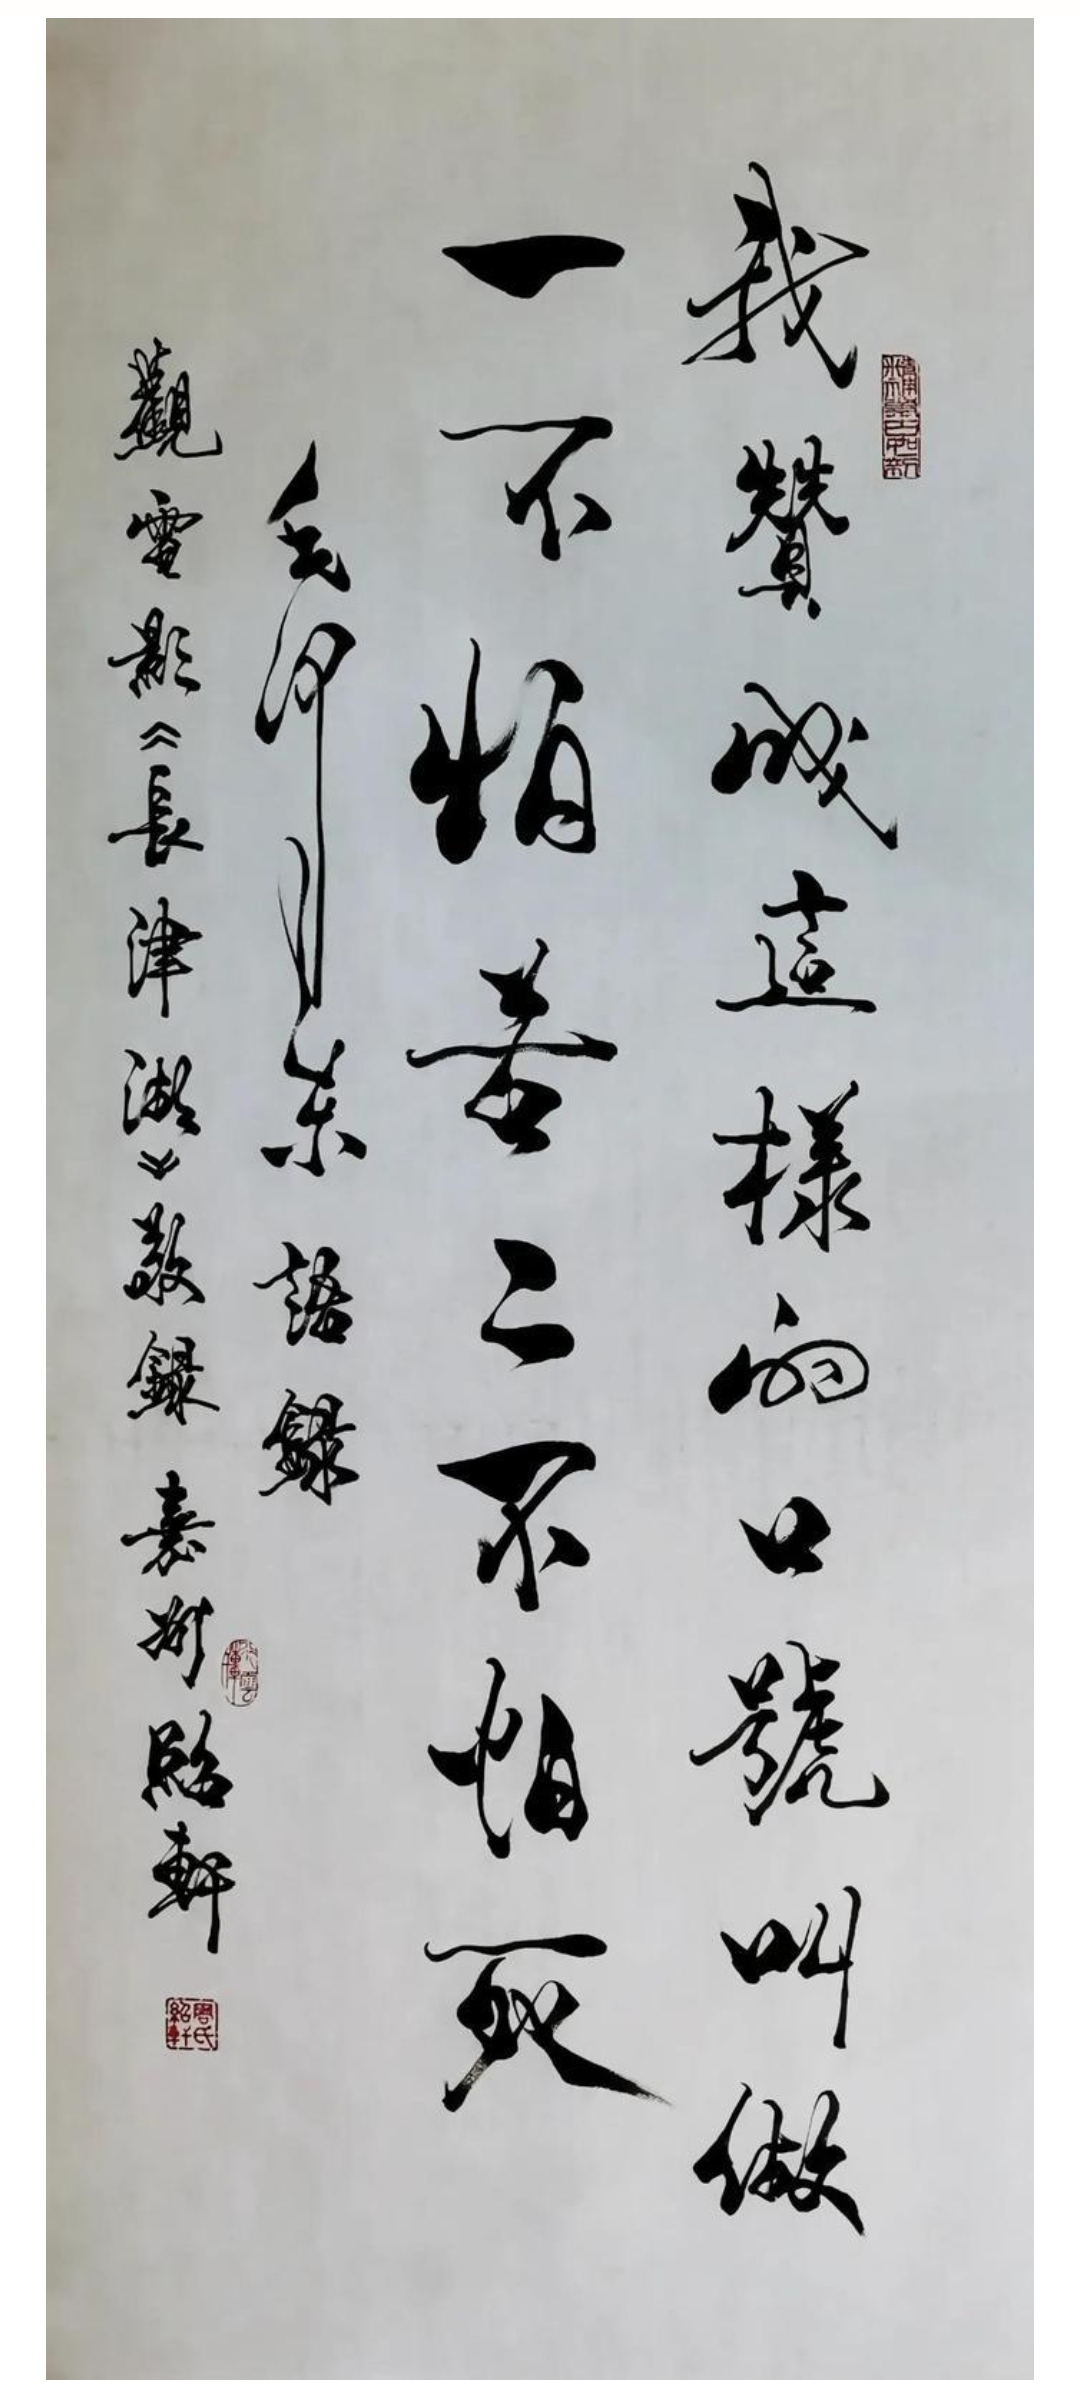 我贊成這樣的口號叫做
一不怕苦二不怕死
毛澤東語錄
觀電影《長津湖》敬錄 嘉州 紹軒